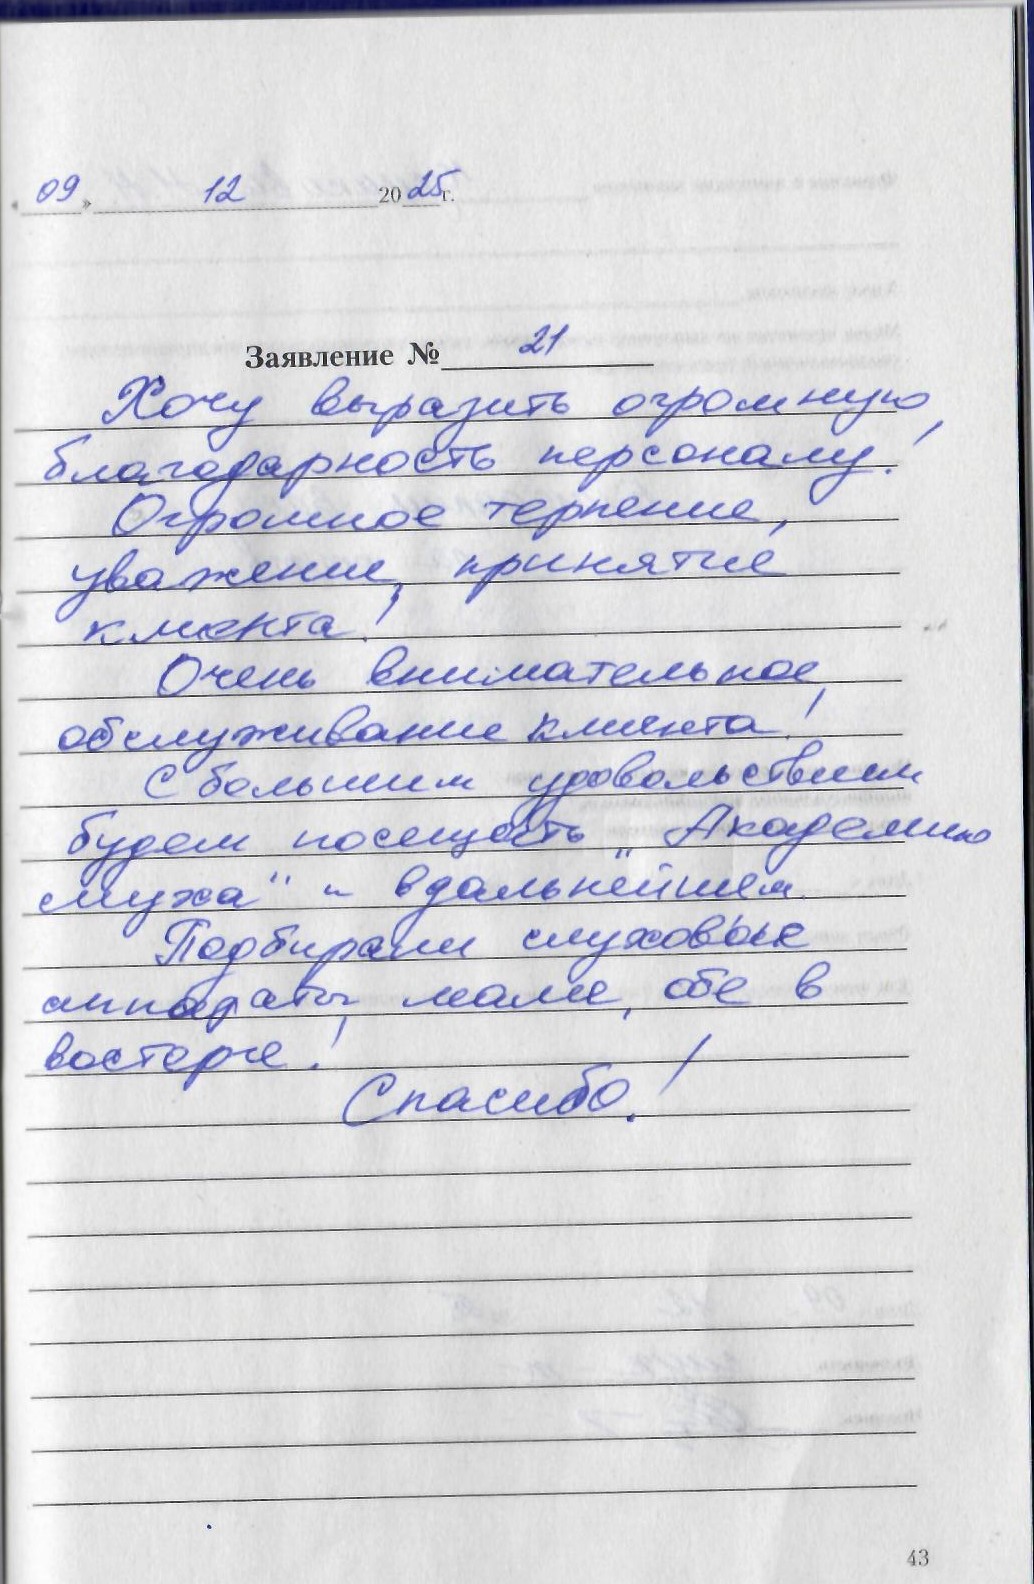 « 09 » 12 2025г.
Заявление № 21
Хочу выразить огромную
благодарность персоналу!
Огромное терпение,
уважение, принятие
клиента!
Очень внимательное
обслуживание клиента!
С большим удовольствием
будем посещать „Академию
слуха" и вдальнейшем.
Подбирали слуховые
аппараты маме, обе в
восторге!
Спасибо!
43